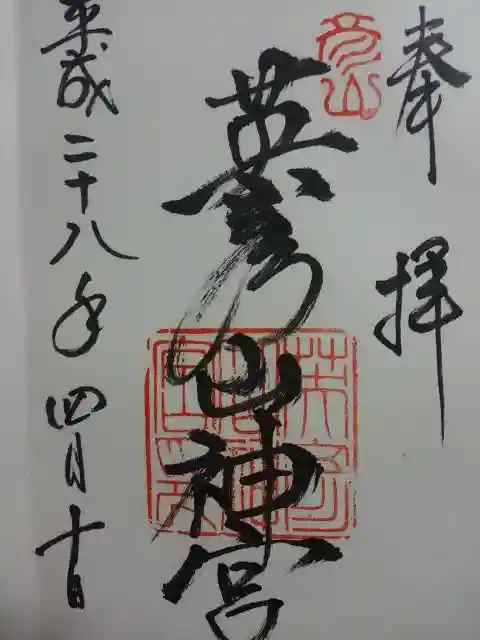 奉拝
彦山
英彦山神宮
平成二十八年四月十日